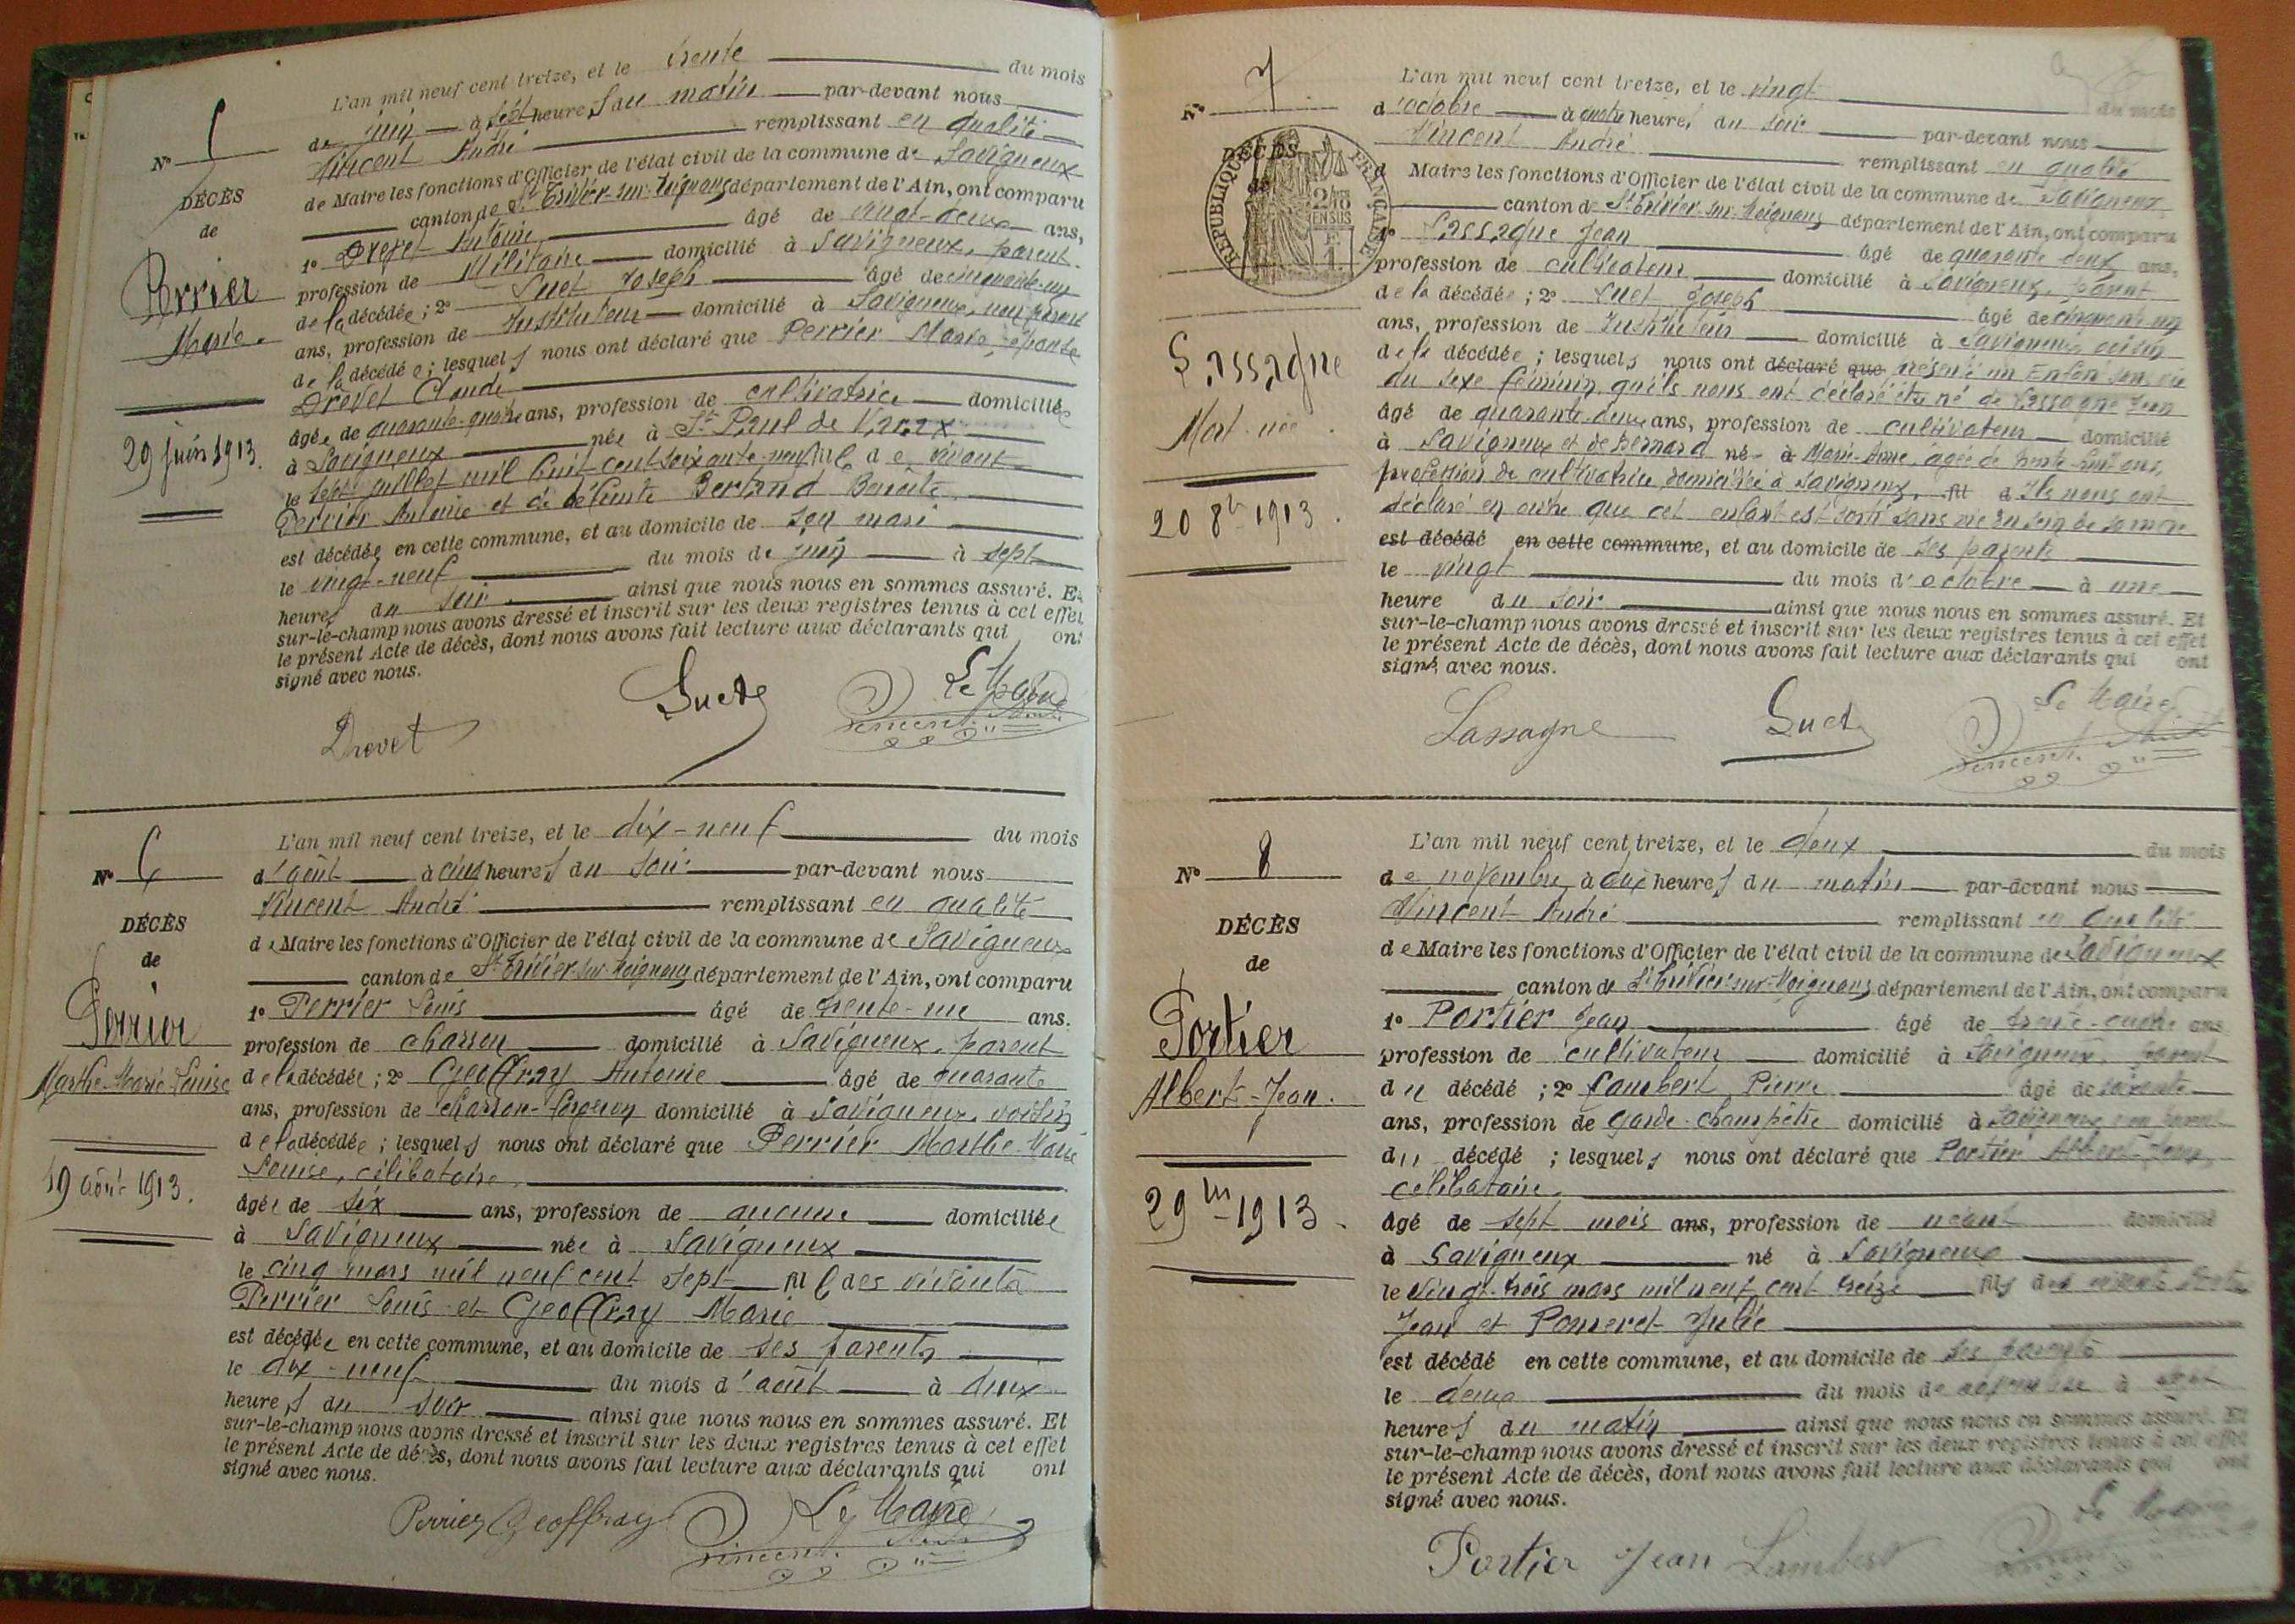 L'an mil neuf cent treize, et le trente du mois
de juin à sept heures du matin par-devant nous
Vincent André remplissant en qualité
de Maire les fonctions d'Officier de l'état civil de la commune de Savigneux
canton de St Trivier-sur-Moignans département de l'Ain, ont comparu
1° Drevet Antoine âgé de vingt-deux ans,
profession de Militaire domicilié à Savigneux, parent
de la décédée ; 2° Suet Joseph âgé de cinquante-un
ans, profession de Instituteur domicilié à Savigneux, non parent
de la décédée ; lesquels nous ont déclaré que Perrier Marie, épouse
Drevet Claude
âgée de quarante-quatre ans, profession de cultivatrice domiciliée
à Savigneux née à St Paul de Varax
le sept juillet mil huit cent soixante-neuf fille de vivant
Perrier Antoine et de défunte Bertrand Benoite
est décédée en cette commune, et au domicile de son mari
le vingt-neuf du mois de juin à sept
heures du soir ainsi que nous nous en sommes assuré. Et
sur-le-champ nous avons dressé et inscrit sur les deux registres tenus à cet effet
le présent Acte de décès, dont nous avons fait lecture aux déclarants qui ont
signé avec nous.
Drevet Suet Le Maire
Vincent André
N° 5
DÉCÈS
de
Perrier
Marie.
29 juin 1913.
L'an mil neuf cent treize, et le dix-neuf du mois
d'août à cinq heures du soir par-devant nous
Vincent André remplissant en qualité
de Maire les fonctions d'Officier de l'état civil de la commune de Savigneux
canton de St Trivier-sur-Moignans département de l'Ain, ont comparu
1° Perrier Louis âgé de trente-un ans.
profession de charron domicilié à Savigneux, parent
de la décédée ; 2° Geoffray Antoine âgé de quarante
ans, profession de charron-forgeron domicilié à Savigneux, voisin
de la décédée ; lesquels nous ont déclaré que Perrier Marthe-Marie
Louise, célibataire,
âgée de six ans, profession de aucune domiciliée
à Savigneux née à Savigneux
le cinq mars mil neuf cent sept fille des vivants
Perrier Louis et Geoffray Marie
est décédée en cette commune, et au domicile de ses parents
le dix-neuf du mois d'août à deux
heures du soir ainsi que nous nous en sommes assuré. Et
sur-le-champ nous avons dressé et inscrit sur les deux registres tenus à cet effet
le présent Acte de décès, dont nous avons fait lecture aux déclarants qui ont
signé avec nous.
Perrier Geoffray Le Maire
Vincent André
N° 6
DÉCÈS
de
Perrier
Marthe-Marie-Louise
19 août 1913.
L'an mil neuf cent treize, et le vingt du mois
d'octobre à quatre heures du soir par-devant nous
Vincent André remplissant en qualité
d Maire les fonctions d'Officier de l'état civil de la commune de Savigneux
canton de St Trivier-sur-Moignans département de l'Ain, ont comparu
1° Lassagne Jean âgé de quarante-deux ans,
profession de cultivateur domicilié à Savigneux, parent
de la décédée ; 2° Suet Joseph âgé de cinquante-un
ans, profession de Instituteur domicilié à Savigneux, voisin
de la décédée ; lesquels nous ont déclaré que présenté un Enfant sans vie
du sexe féminin qu'ils nous ont déclaré être né de Lassagne Jean
âgé de quarante-deux ans, profession de cultivateur domicilié
à Savigneux et de Bernard né à Marie-Anne, âgée de trente-huit ans,
profession de cultivatrice, domiciliée à Savigneux, fil d Ils nous ont
déclaré en outre que cet enfant est sorti sans vie du sein de sa mère
est décédé en cette commune, et au domicile de ses parents
le vingt du mois d'octobre à une
heure du soir ainsi que nous nous en sommes assuré. Et
sur-le-champ nous avons dressé et inscrit sur les deux registres tenus à cet effet
le présent Acte de décès, dont nous avons fait lecture aux déclarants qui ont
signé avec nous.
Lassagne Suet Le Maire
Vincent André
N° 7
DÉCÈS
de
RÉPUBLIQUE FRANÇAISE
2/10 EN SUS
Lassagne
Mort-née.
20 8bre 1913.
L'an mil neuf cent treize, et le deux du mois
de novembre à dix heures du matin par-devant nous
Vincent André remplissant en qualité
de Maire les fonctions d'Officier de l'état civil de la commune de Savigneux
canton de St Trivier-sur-Moignans département de l'Ain, ont comparu
1° Portier Jean âgé de trente-quatre ans
profession de cultivateur domicilié à Savigneux, parent
du décédé ; 2° Lambert Pierre âgé de soixante
ans, profession de garde-champêtre domicilié à Savigneux, non parent
du décédé ; lesquels nous ont déclaré que Portier Albert-Jean,
célibataire,
âgé de sept mois ans, profession de néant domicilié
à Savigneux né à Savigneux
le vingt-trois mars mil neuf cent treize fils des vivants Portier
Jean et Pomeret Julie
est décédé en cette commune, et au domicile de ses parents
le deux du mois de novembre à
heures du matin ainsi que nous nous en sommes assuré. Et
sur-le-champ nous avons dressé et inscrit sur les deux registres tenus à cet effet
le présent Acte de décès, dont nous avons fait lecture aux déclarants qui ont
signé avec nous.
Portier Jean Lambert Le Maire
Vincent
N° 8
DÉCÈS
de
Portier
Albert-Jean.
2 9bre 1913.